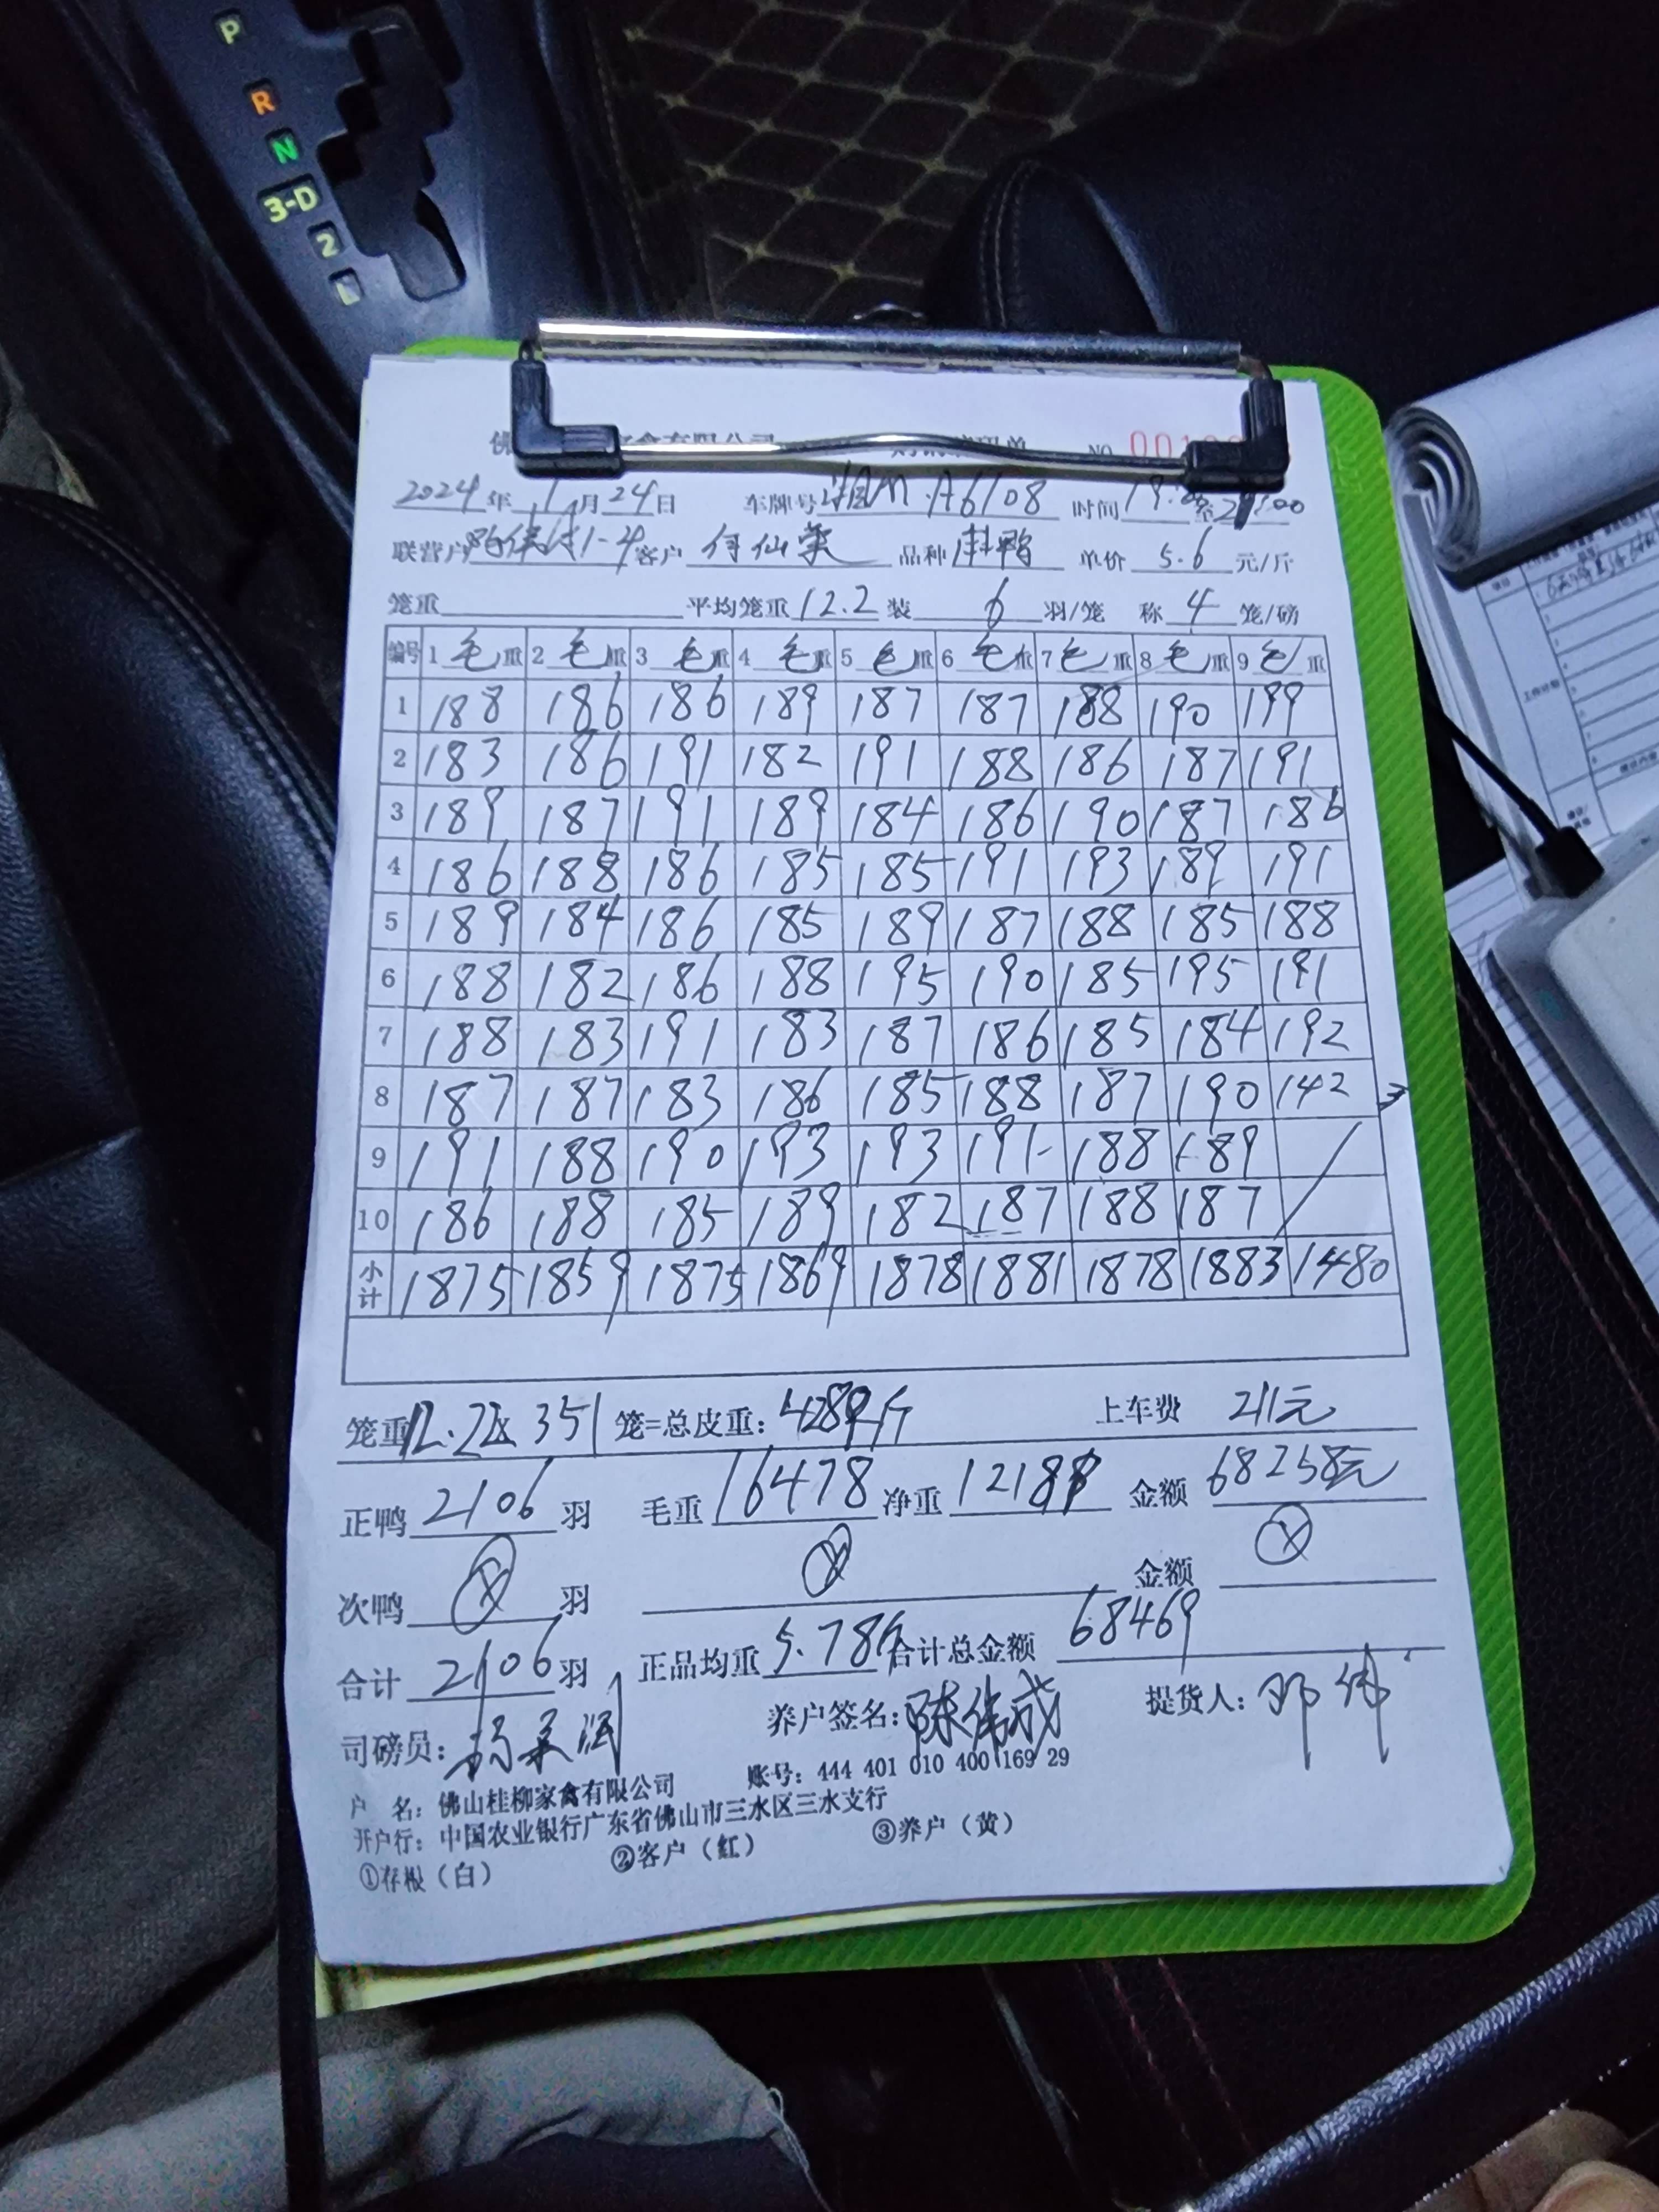 P
R
N
3-D
2
L
家禽有限公司 NO 001
2024年 1月 24日 车牌号 A6108 时间 19:00至21:00
联营户 1-4 客户 何仙 品种 鸭 单价 5.6 元/斤
笼重 平均笼重 12.2 装 6 羽/笼 称 4 笼/磅
编号 1 毛重 2 毛重 3 毛重 4 毛重 5 毛重 6 毛重 7 毛重 8 毛重 9 毛重
1 188 186 186 189 187 187 188 190 199
2 183 186 191 182 191 188 186 187 191
3 189 187 191 189 184 186 190 187 186
4 186 188 186 185 185 191 193 189 191
5 189 184 186 185 189 187 188 185 188
6 188 182 186 188 195 190 185 195 191
7 188 183 191 183 187 186 185 184 192
8 187 187 183 186 185 188 187 190 142 3
9 191 188 190 193 193 191 188 189 /
10 186 188 185 189 182 187 188 187 /
小计 1875 1859 1875 1869 1878 1881 1878 1883 1480
笼重 12.2x 351 笼=总皮重: 4289斤 上车费 211元
正鸭 2106 羽 毛重 16478 净重 12189 金额 68258元
次鸭 ⓧ 羽 ⓧ 金额 ⓧ
合计 2106 羽 正品均重 5.78斤 合计总金额 68469
司磅员: 养户签名: 陈伟成 提货人: 邓伟
户 名: 佛山桂柳家禽有限公司 账号: 444 401 010 400 169 29
开户行: 中国农业银行广东省佛山市三水区三水支行
①存根（白） ②客户（红） ③养户（黄）